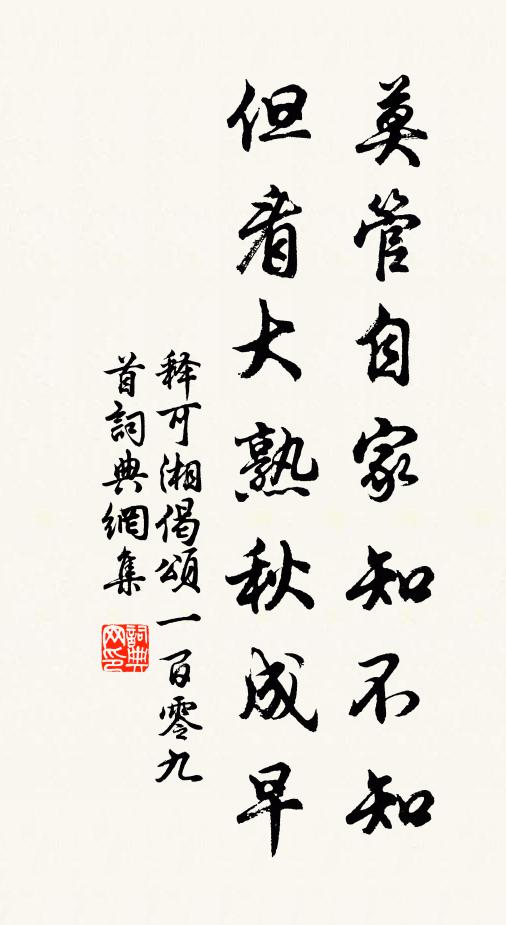 莫管自家知不知
但看大熟秋成早
释可湘偈頌一百零九
首詞典網集
詞典
网印